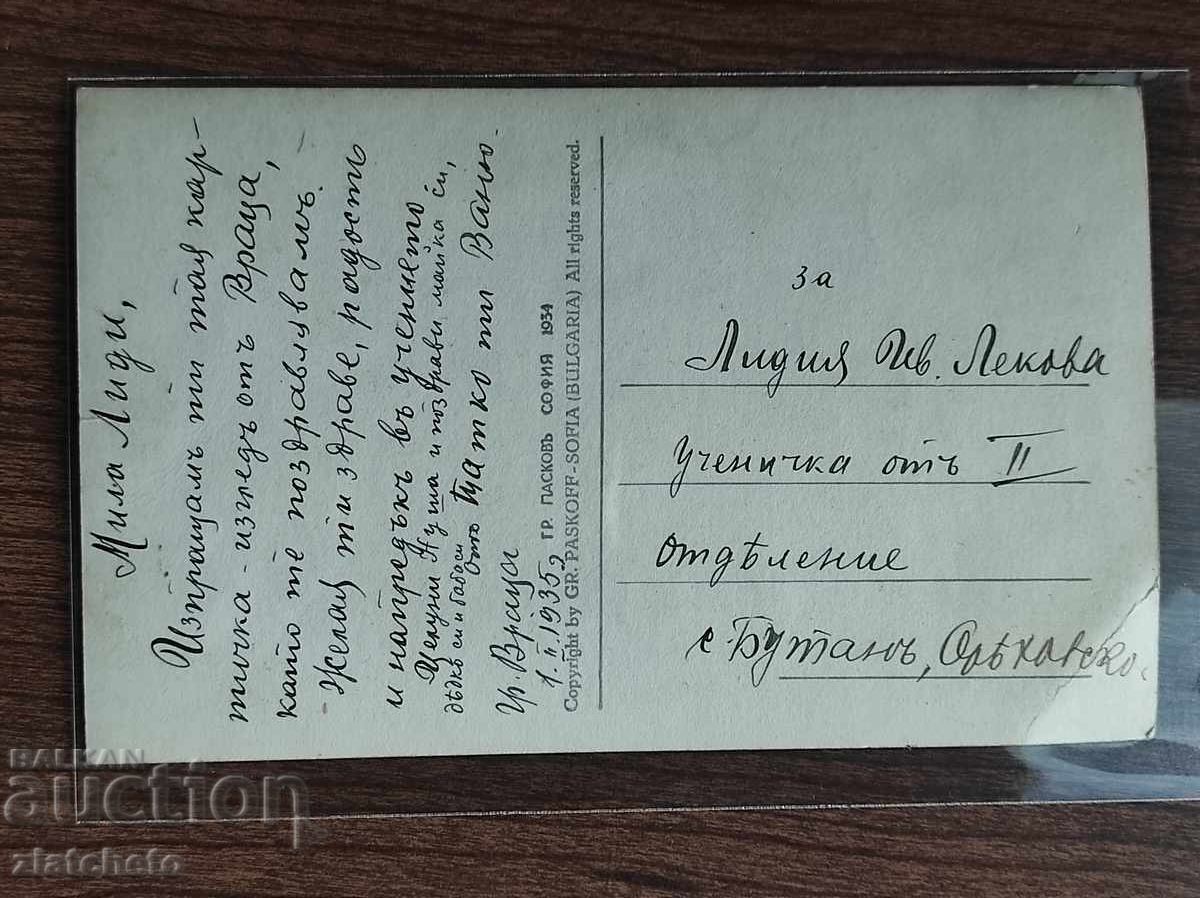 Мила Лиди,
Изпращамъ ти тая кар-
тичка - изгледъ отъ Враца,
като те поздравлявамъ.
Желая ти здраве, радость
и напредъкъ въ учението
Целуни Нуша и поздрави майка си,
дѣдкѣ си и бабаси
отъ Татко ти Ваню.
Гр. Враца
1.II.1935 г.
ГР. ПАСКОВЪ СОФИЯ 1934
Copyright by GR. PASKOFF-SOFIA (BULGARIA) All rights reserved.
за
Лидия Ив. Лекова
ученичка отъ II
отдѣление
с. Бутанъ, Орѣховско.
BALKAN
auction
zlatcheto